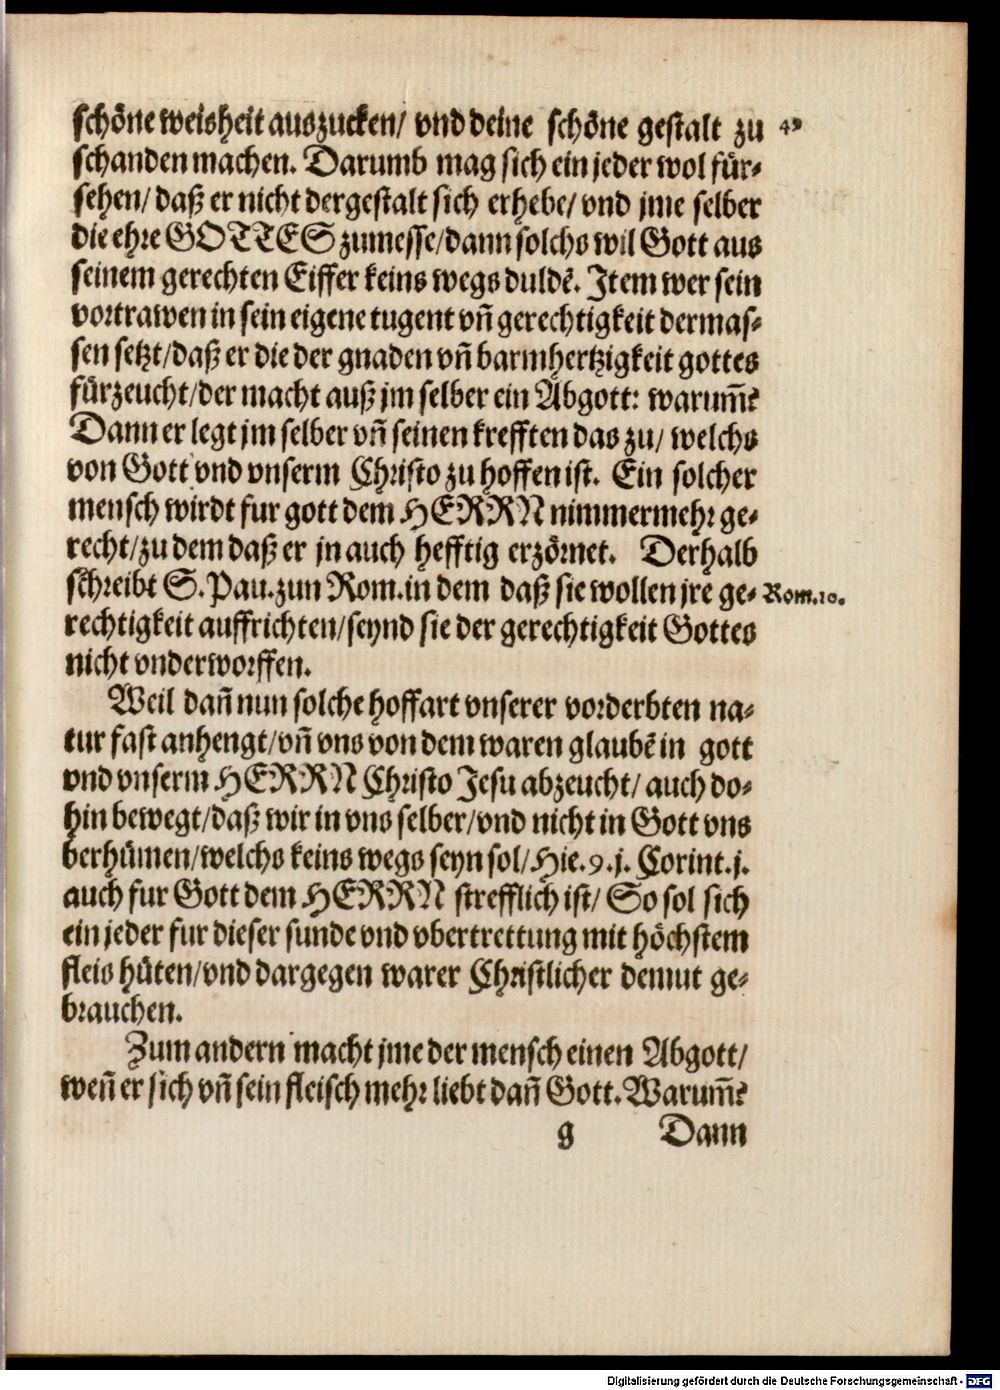 schöne weisheit auszucken/ vnd deine schöne gestalt zu 49
schanden machen. Darumb mag sich ein jeder wol für-
sehen/ daß er nicht dergestalt sich erhebe/ vnd jme selber
die ehre GOTTES zumesse/ dann solchs wil Gott aus
seinem gerechten Eiffer keins wegs duldẽ. Item wer sein
vortrawen in sein eigene tugent vñ gerechtigkeit dermas-
sen setzt/ daß er die der gnaden vñ barmhertzigkeit gottes
fürzeucht/ der macht auß jm selber ein Abgott: warum̃?
Dann er legt jm selber vñ seinen krefften das zu/ welchs
von Gott vnd vnserm Christo zu hoffen ist. Ein solcher
mensch wirdt fur gott dem HERRN nimmermehr ge-
recht/ zu dem daß er jn auch hefftig erzörnet. Derhalb
schreibt S. Pau. zun Rom. in dem daß sie wollen jre ge- Rom.10.
rechtigkeit auffrichten/ seynd sie der gerechtigkeit Gottes
nicht vnderworffen.
Weil dañ nun solche hoffart vnserer vorderbten na-
tur fast anhengt/ vñ vns von dem waren glaubẽ in gott
vnd vnserm HERRN Christo Jesu abzeucht/ auch do-
hin bewegt/ daß wir in vns selber/ vnd nicht in Gott vns
berhümen/ welchs keins wegs seyn sol/ Hie. 9. j. Corint. j.
auch fur Gott dem HERRN strefflich ist/ So sol sich
ein jeder fur dieser sunde vnd vbertrettung mit höchstem
fleis hüten/ vnd dargegen warer Christlicher demut ge-
brauchen.
Zum andern macht jme der mensch einen Abgott/
weñ er sich vñ sein fleisch mehr liebt dañ Gott. Warum̃?
g Dann
Digitalisierung gefördert durch die Deutsche Forschungsgemeinschaft - DFG